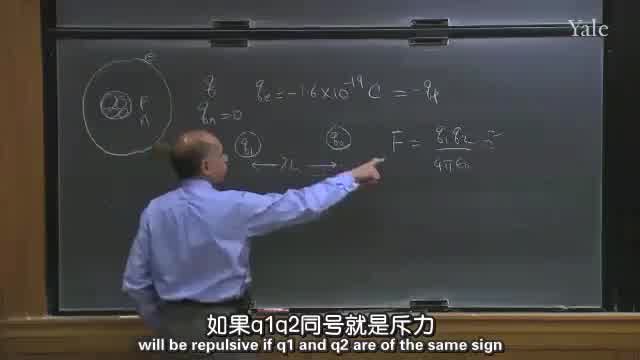 Yale
e
P
n
q
q_e = -1.6 × 10^-19 C = -q_p
q_n = 0
q_1
q_2
F = q_1 q_2 / 4π ε_0
如果q1q2同号就是斥力
will be repulsive if q1 and q2 are of the same sign